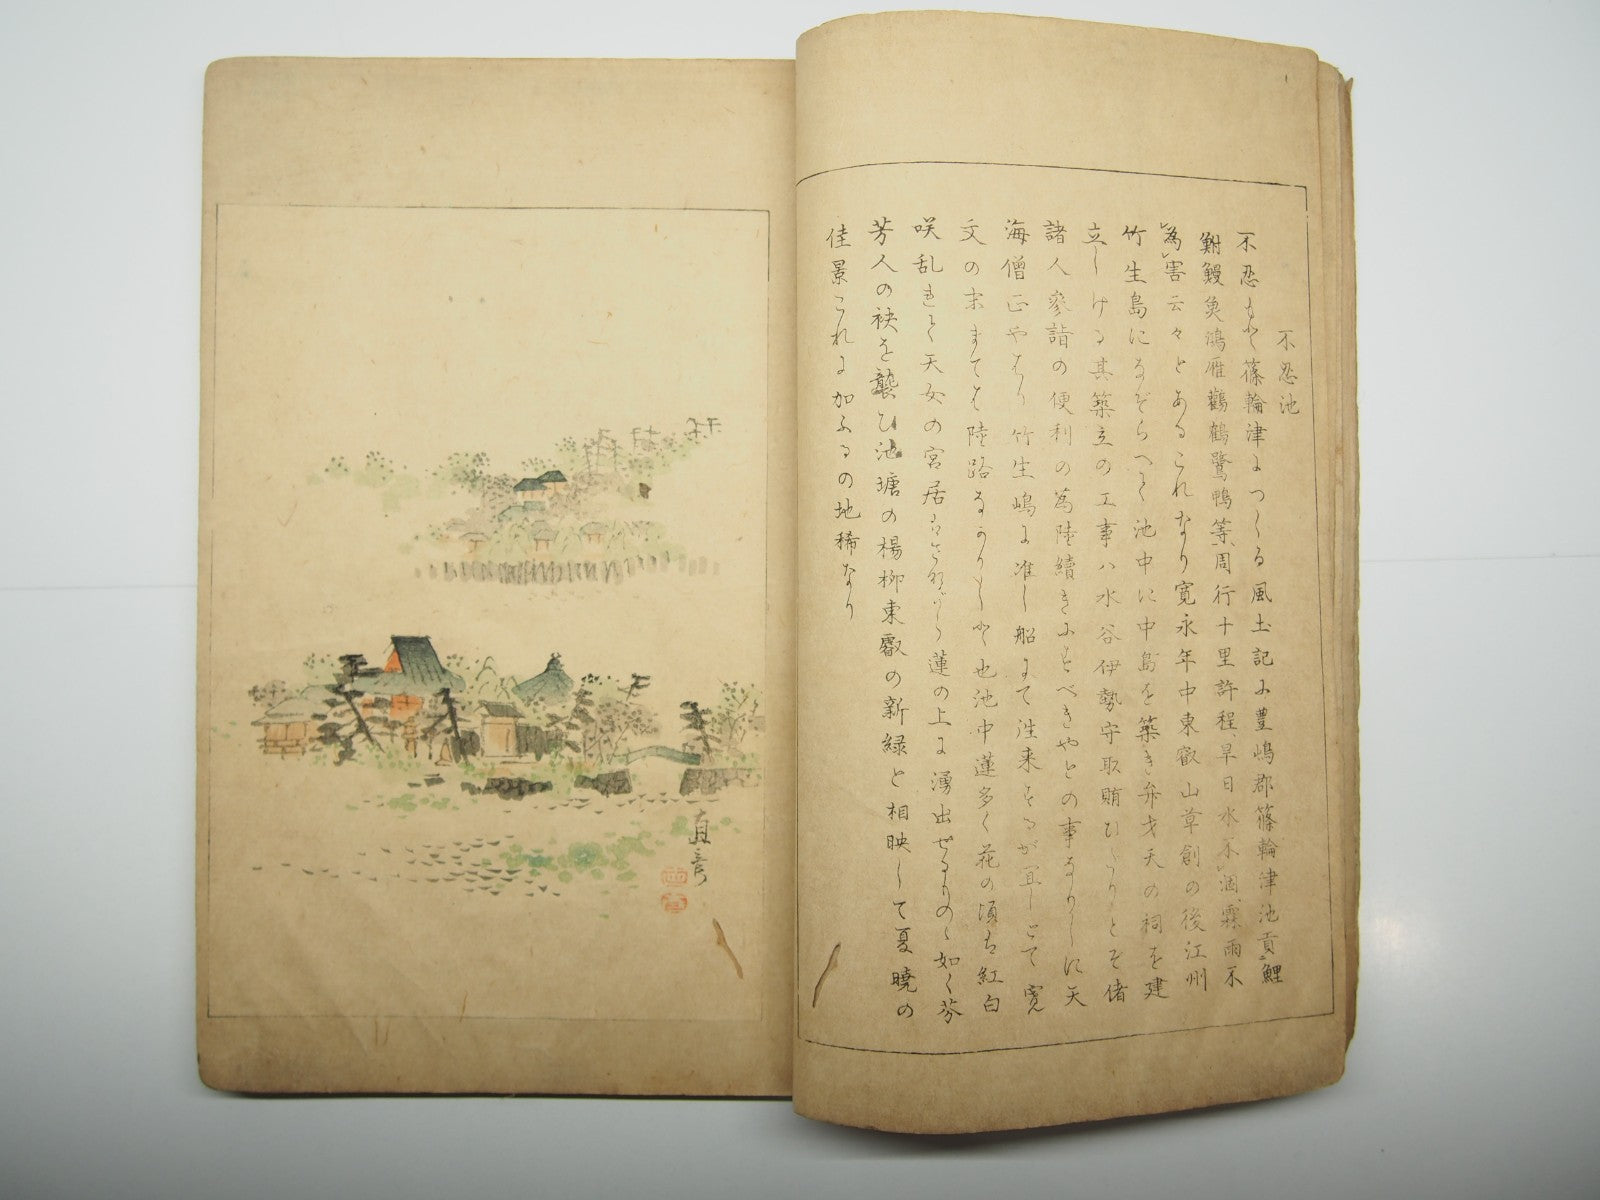 不忍池
不忍もと篠輪津につくる風土記に豊嶋郡篠輪津池貢鯉
鮒鰻魚鴻雁鸛鶴鷺鴨等周行十里許程旱日水不涸霖雨不
為害云々とあるこれなり寛永年中東叡山草創の後江州
竹生島になぞらへて池中に中島を築き弁才天の祠を建
立しける其築立の工事ハ水谷伊勢守取賄ひしりとぞ
諸人參詣の便利の為陸續きにすべきやとの事なりしに天
海僧正やはり竹生嶋に准し船にて往来するが宜しとて寛
文の末まては陸路なかりしと也池中蓮多く花の頃は紅白
咲乱れて天女の宮居はさながら蓮の上に湧出せるものゝ如く芬
芳人の袂を襲ひ池塘の楊柳東叡の新緑と相映して夏曉の
佳景これに加ふるの地稀なり
直彦